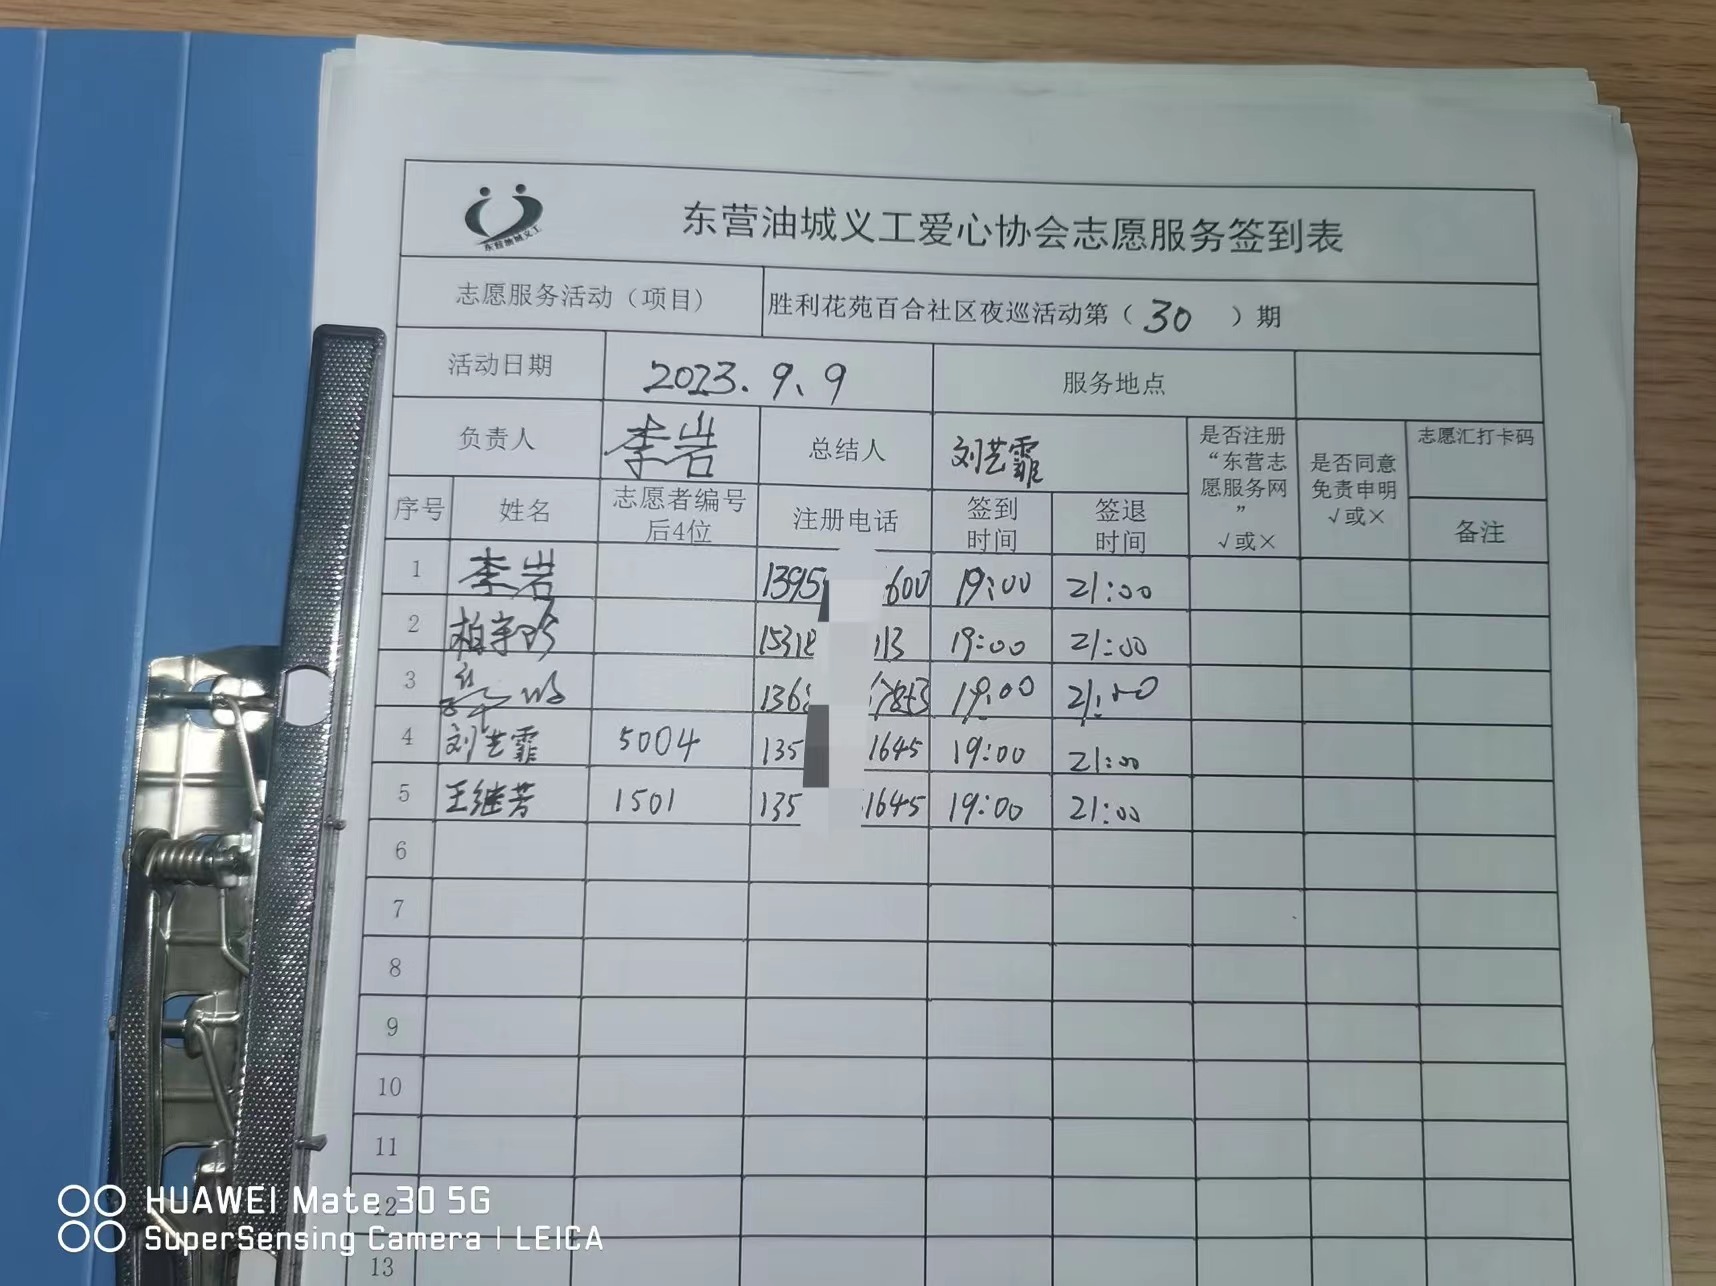 东营油城义工
东营油城义工爱心协会志愿服务签到表
志愿服务活动（项目） 胜利花苑百合社区夜巡活动第（30）期
活动日期 2023.9.9 服务地点
负责人 李岩 总结人 刘艺霏 是否注册“东营志愿服务网”√或× 是否同意免责申明√或× 志愿汇打卡码
序号 姓名 志愿者编号后4位 注册电话 签到时间 签退时间 备注
1 李岩 1395 600 19:00 21:00
2 1531 113 19:00 21:00
3 136 19:00 21:00
4 刘艺霏 5004 135 1645 19:00 21:00
5 王继芳 1501 135 1645 19:00 21:00
6
7
8
9
10
11
12
13
HUAWEI Mate 30 5G
SuperSensing Camera | LEICA